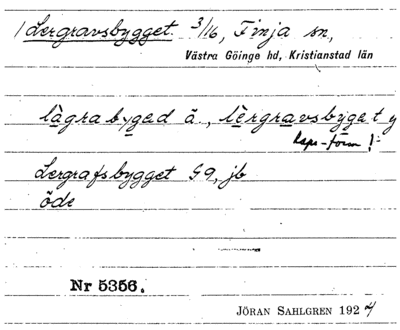 / Lergravsbygget. 3/16, Finja sn,
Västra Göinge hd, Kristianstad län
lägrabygad ä., lèrgravsbyget y
kaps-form!
Lergrafsbygget G9, jb
öde
Nr 5356.
JÖRAN SAHLGREN 1924